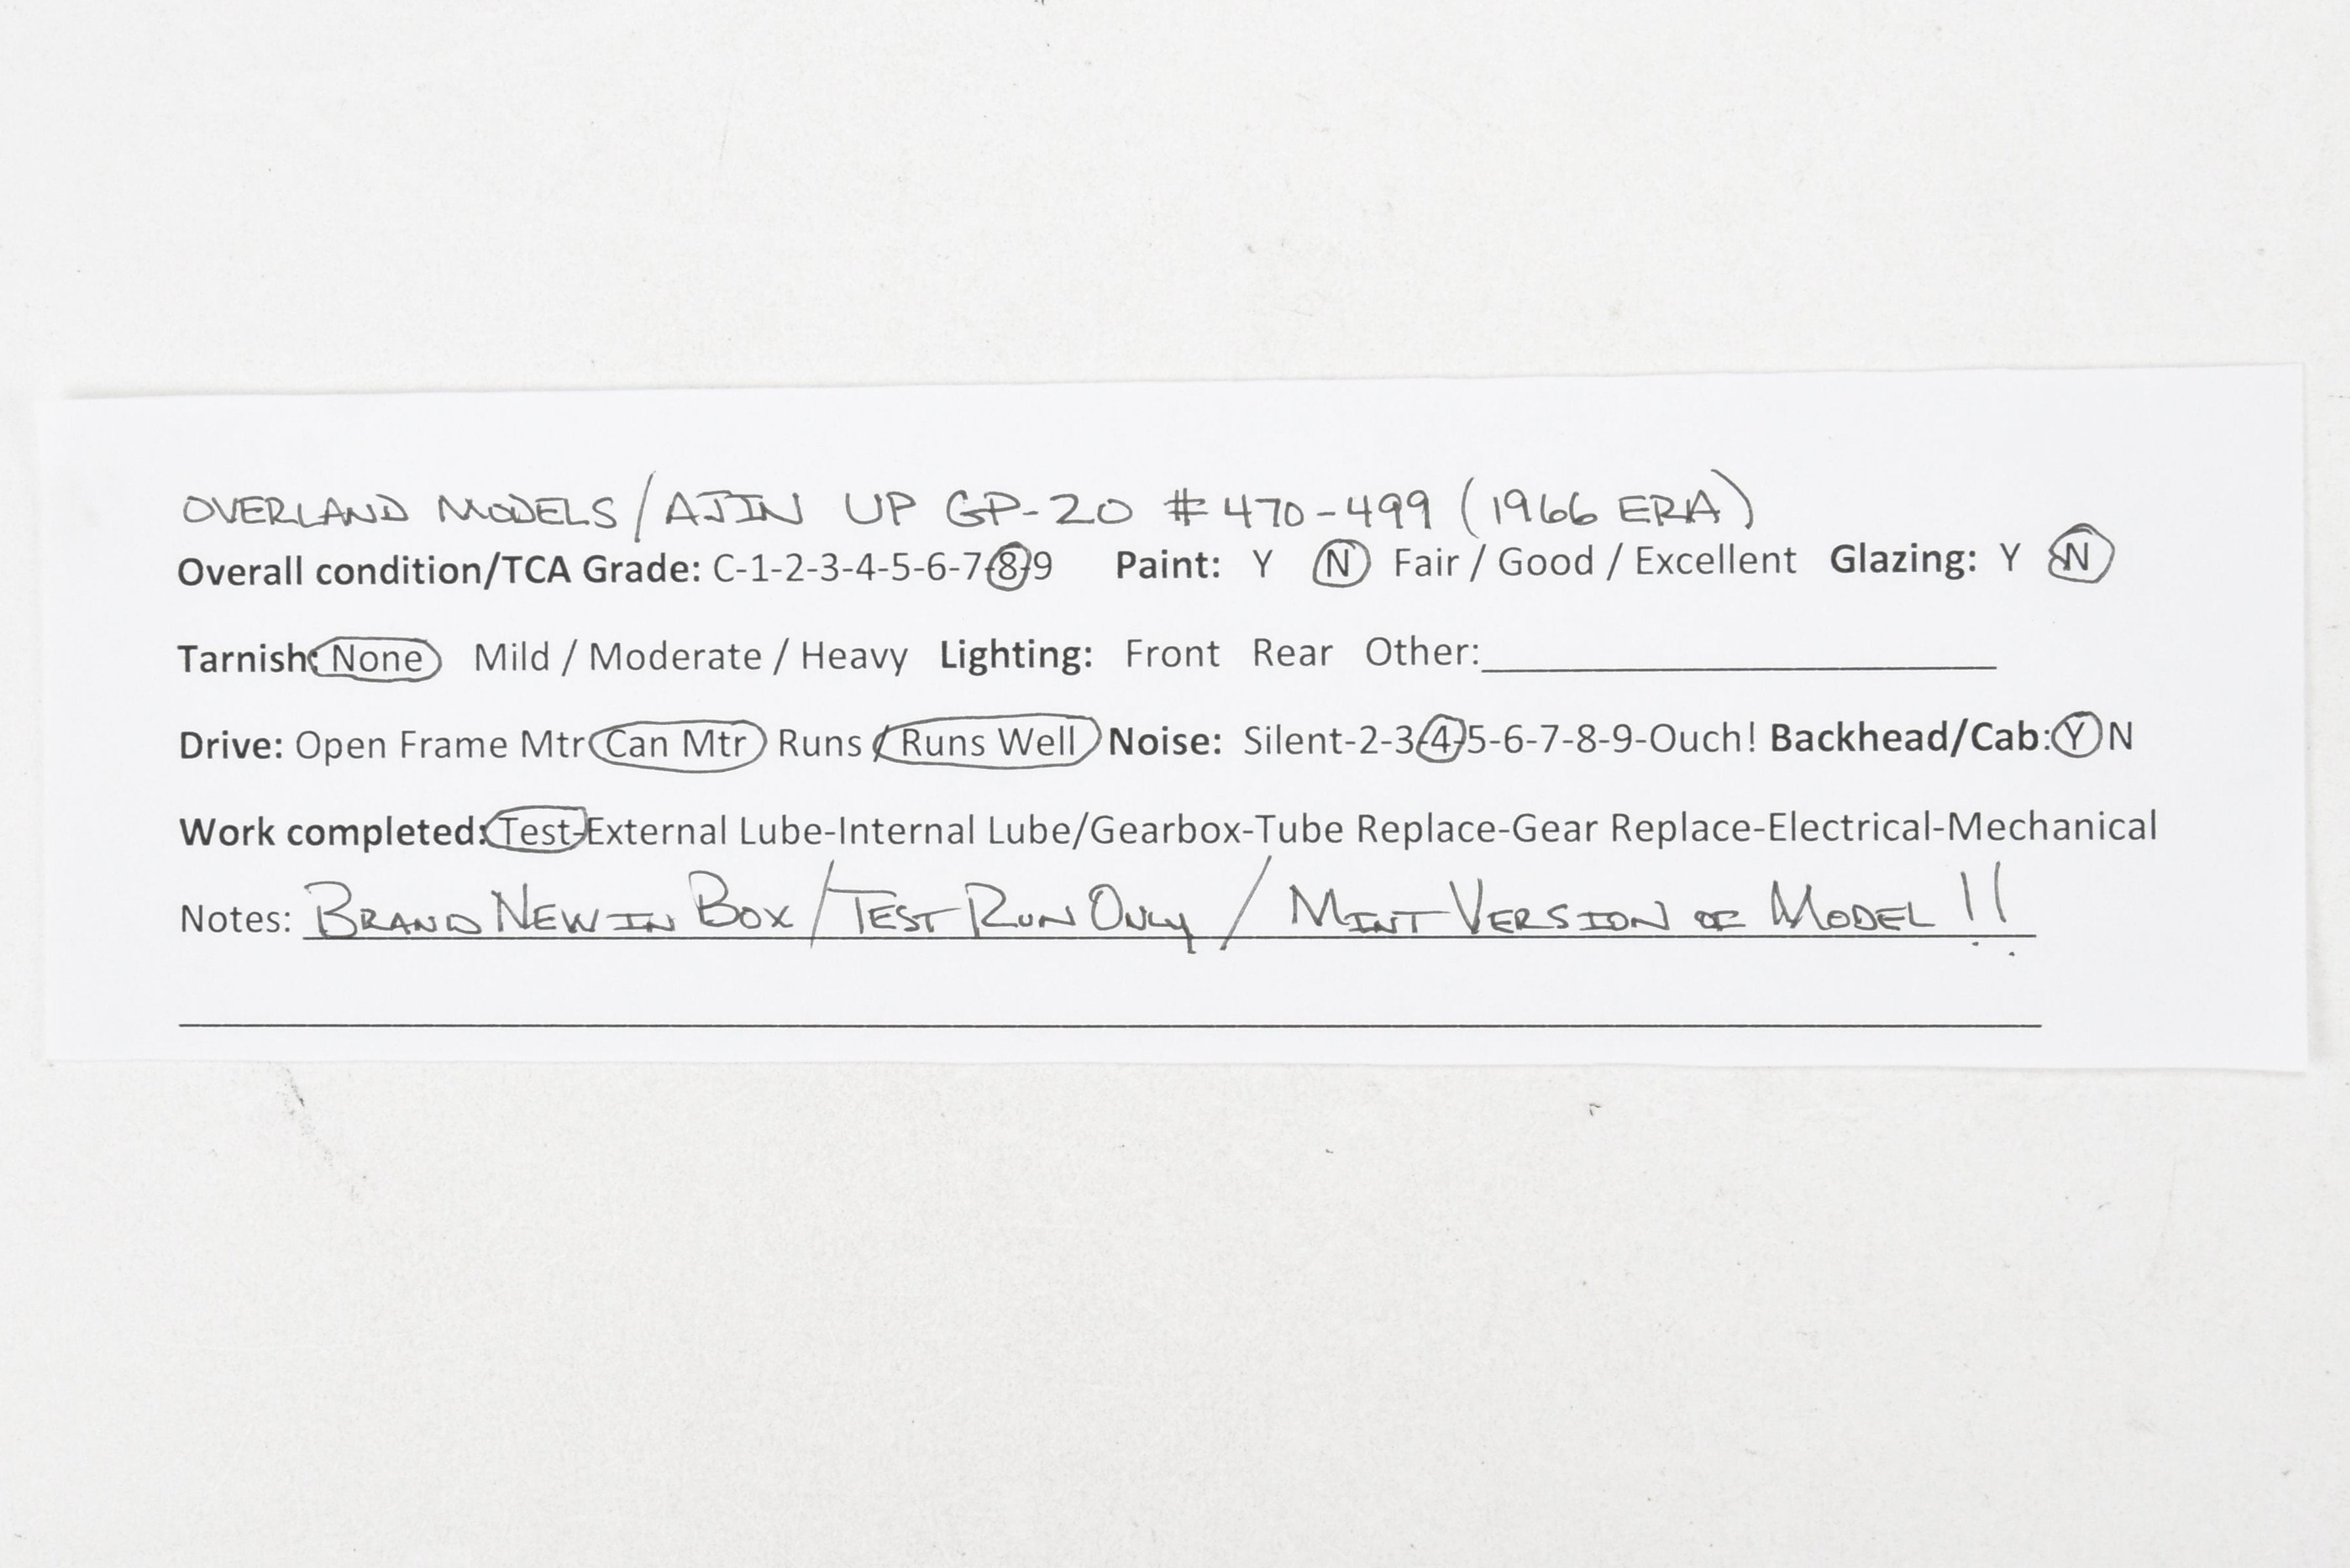 OVERLAND MODELS/AJIN UP GP-20 #470-499 (1966 ERA)
Overall condition/TCA Grade: C-1-2-3-4-5-6-7-8-9 Paint: Y N Fair / Good / Excellent Glazing: Y N
Tarnish: None Mild / Moderate / Heavy Lighting: Front Rear Other:
Drive: Open Frame Mtr Can Mtr Runs / Runs Well Noise: Silent-2-3-4-5-6-7-8-9-Ouch! Backhead/Cab: Y N
Work completed: Test-External Lube-Internal Lube/Gearbox-Tube Replace-Gear Replace-Electrical-Mechanical
Notes: BRAND NEW IN BOX / TEST RUN ONLY / MINT VERSION OF MODEL !!